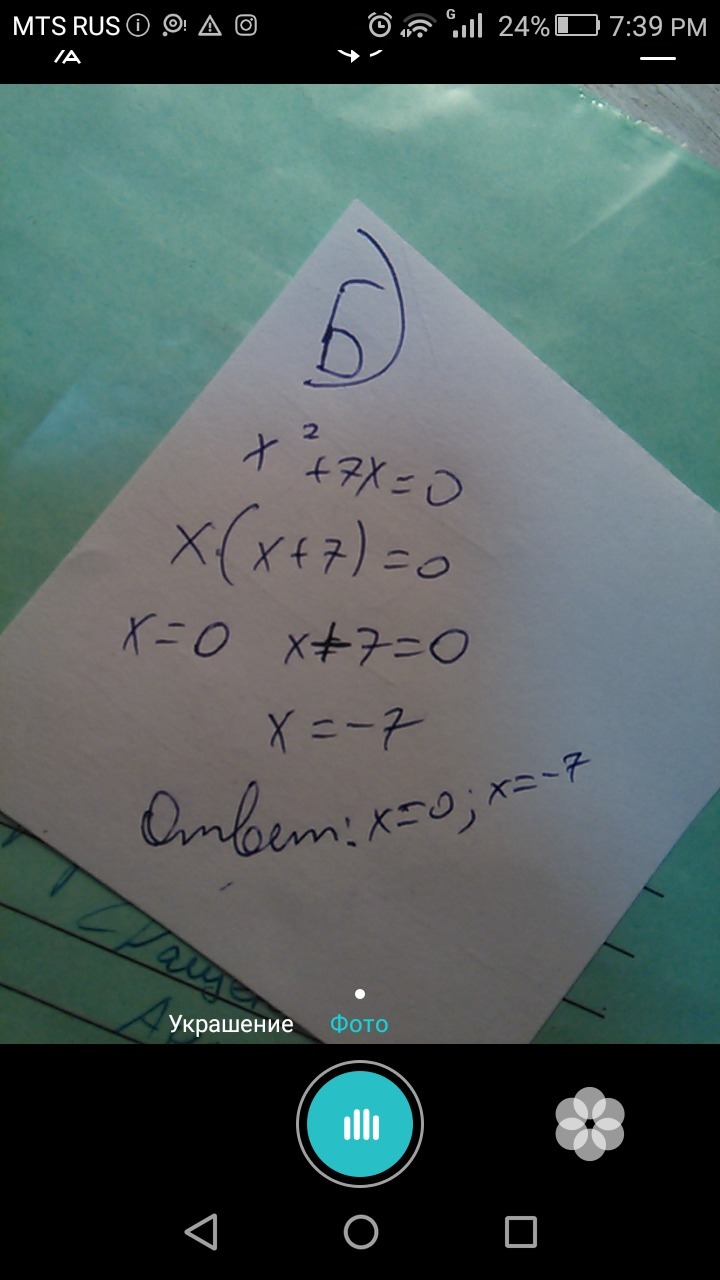 MTS RUS 24% 7:39 PM
Б)
x² +7x=0
x·(x+7)=0
x=0 x+7=0
x=-7
Ответ: x=0; x=-7
Украшение Фото